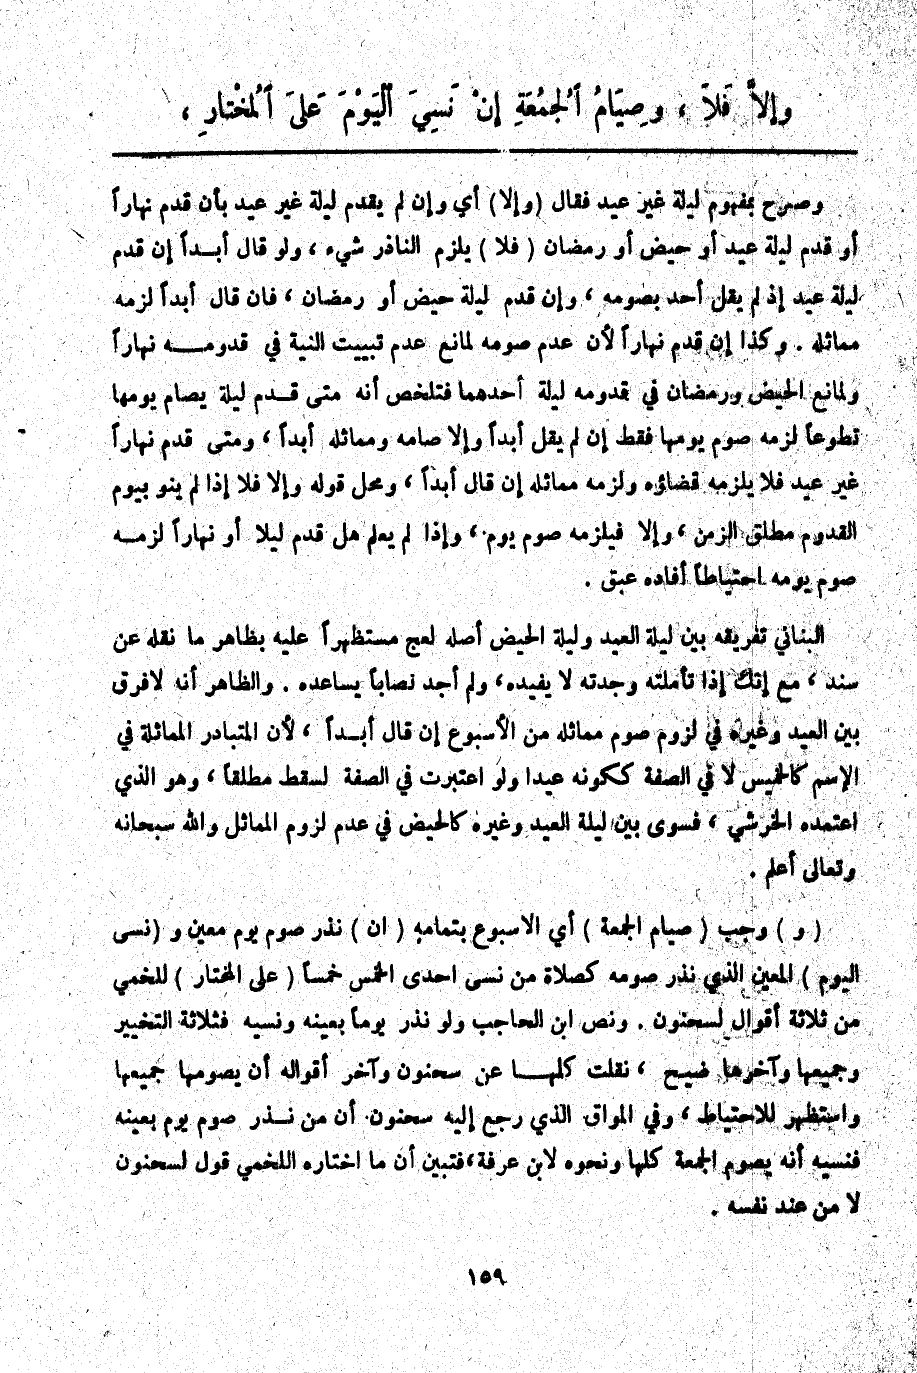 وإلاَّ فَلاَ ، وصِيَامُ ٱلْجُمُعَةِ إِنْ نَسِيَ ٱلْيَوْمَ عَلَى ٱلْمُخْتَارِ ،
وصرح بمفهوم ليلة غير عيد فقال (وإلا) أي وإن لم يقدم ليلة غير عيد بأن قدم نهاراً
أو قدم ليلة عيد أو حيض أو رمضان ( فلا ) يلزم الناذر شيء ، ولو قال أبــداً إن قدم
ليلة عيد إذ لم يقل أحد بصومه ، وإن قدم ليلة حيض أو رمضان ، فان قال أبداً لزمه
مماثله . وكذا إن قدم نهاراً لأن عدم صومه لمانع عدم تبييت النية في قدومـــه نهاراً
ولمانع الحيض ورمضان في قدومه ليلة أحدهما فتلخص أنه متى قــدم ليلة يصام يومها
تطوعاً لزمه صوم يومها فقط إن لم يقل أبداً وإلا صامه ومماثله أبداً ، ومتى قدم نهاراً
غير عيد فلا يلزمه قضاؤه ولزمه مماثله إن قال أبداً ، ومحل قوله وإلا فلا إذا لم ينو بيوم
القدوم مطلق الزمن ، وإلا فيلزمه صوم يوم ، وإذا لم يعلم هل قدم ليلا أو نهاراً لزمــه
صوم يومه احتياطاً أفاده عبق .
البناني تفريقه بين ليلة العيد وليلة الحيض أصله لعج مستظهراً عليه بظاهر ما نقله عن
سند ، مع إنك إذا تأملته وجدته لا يفيده، ولم أجد نصاباً يساعده . والظاهر أنه لافرق
بين العيد وغيره في لزوم صوم مماثله من الأسبوع إن قال أبــداً ، لأن المتبادر المماثلة في
الإسم كالخميس لا في الصفة ككونه عيدا ولو اعتبرت في الصفة لسقط مطلقاً ، وهو الذي
اعتمده الخرشي ، فسوى بين ليلة العيد وغيره كالحيض في عدم لزوم المماثل والله سبحانه
وتعالى أعلم .
( و ) وجب ( صيام الجمعة ) أي الاسبوع بتمامه ( ان ) نذر صوم يوم معين و (نسى
اليوم ) المعين الذي نذر صومه كصلاة من نسى احدى الخمس خمساً ( على المختار ) للخمي
من ثلاثة أقوال لسحنون . ونص ابن الحاجب ولو نذر يوماً بعينه ونسيه فثلاثة التخيير
وجميعها وآخرها ضيح ، نقلت كلهــا عن سحنون وآخر أقواله أن يصومها جميعها
واستظهر للاحتياط ، وفي المواق الذي رجع إليه سحنون أن من نــذر صوم يوم بعينه
فنسيه أنه يصوم الجمعة كلها ونحوه لابن عرفة،فتبين أن ما اختاره اللخمي قول لسحنون
لا من عند نفسه .
١٥٩